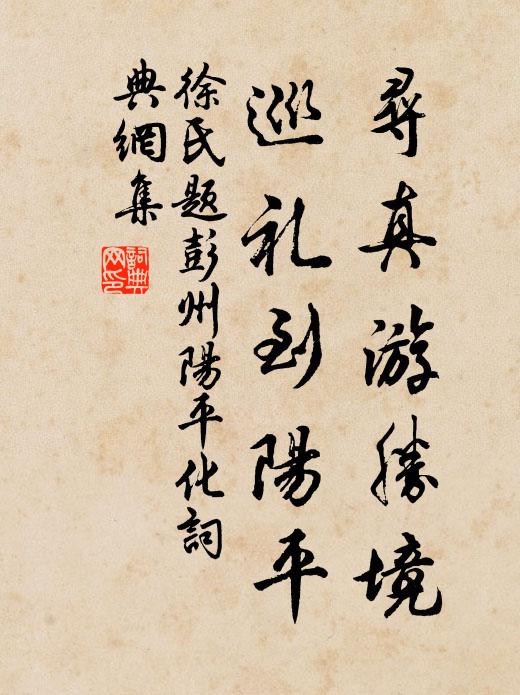 尋真游勝境
巡礼到陽平
徐氏题彭州陽平化詞
典網集
詞典
网印